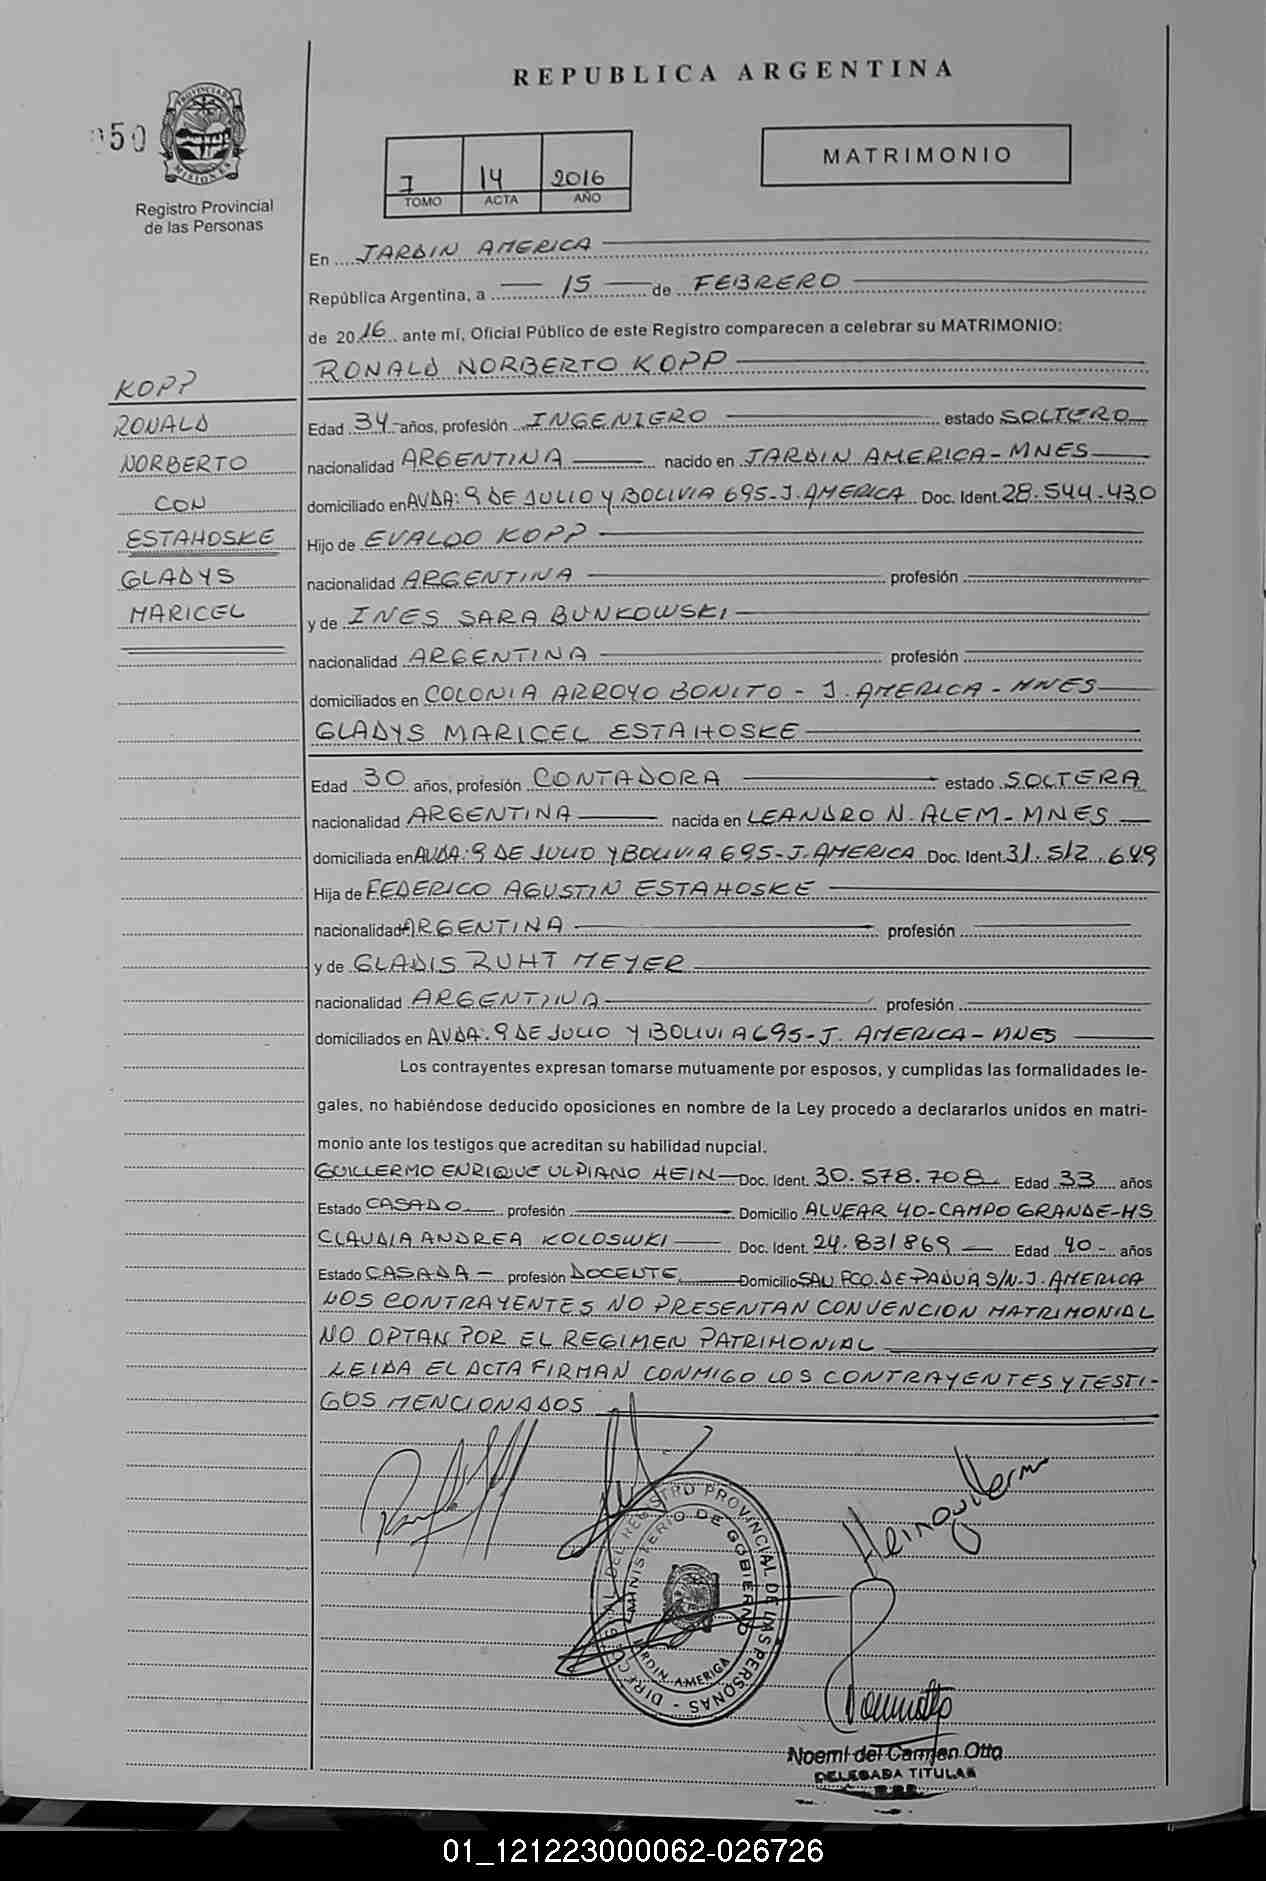 REPUBLICA ARGENTINA
050
PROVINCIA DE MISIONES
Registro Provincial
de las Personas
7 14 2016
TOMO ACTA AÑO
MATRIMONIO
En JARDIN AMERICA
República Argentina, a 15 de FEBRERO
de 2016 ante mí, Oficial Público de este Registro comparecen a celebrar su MATRIMONIO:
RONALD NORBERTO KOPP
KOPP
RONALD
NORBERTO
CON
ESTAHOSKE
GLADYS
MARICEL
Edad 34 años, profesión INGENIERO estado SOLTERO
nacionalidad ARGENTINA nacido en JARDIN AMERICA-MNES
domiciliado en AVDA: 9 DE JULIO Y BOLIVIA 695-J.AMERICA Doc. Ident. 28.544.430
Hijo de EVALDO KOPP
nacionalidad ARGENTINA profesión
y de INES SARA BUNKOWSKI
nacionalidad ARGENTINA profesión
domiciliados en COLONIA ARROYO BONITO - J. AMERICA - MNES
GLADYS MARICEL ESTAHOSKE
Edad 30 años, profesión CONTADORA estado SOLTERA
nacionalidad ARGENTINA nacida en LEANDRO N. ALEM-MNES
domiciliada en AVDA: 9 DE JULIO Y BOLIVIA 695-J.AMERICA Doc. Ident. 31.512.649
Hija de FEDERICO AGUSTIN ESTAHOSKE
nacionalidad ARGENTINA profesión
y de GLADIS RUHT MEYER
nacionalidad ARGENTINA profesión
domiciliados en AVDA: 9 DE JULIO Y BOLIVIA 695-J. AMERICA-MNES
Los contrayentes expresan tomarse mutuamente por esposos, y cumplidas las formalidades le-
gales, no habiéndose deducido oposiciones en nombre de la Ley procedo a declararlos unidos en matri-
monio ante los testigos que acreditan su habilidad nupcial.
GUILLERMO ENRIQUE ULPIANO HEIN Doc. Ident. 30.578.708 Edad 33 años
Estado CASADO profesión Domicilio ALVEAR 40-CAMPO GRANDE-MS
CLAUDIA ANDREA KOLOSWKI Doc. Ident. 24.831869 Edad 40 años
Estado CASADA profesión DOCENTE Domicilio SAN FCO. DE PADUA S/N. J. AMERICA
LOS CONTRAYENTES NO PRESENTAN CONVENCION MATRIMONIAL
NO OPTAN POR EL REGIMEN PATRIMONIAL
LEIDA EL ACTA FIRMAN CONMIGO LOS CONTRAYENTES Y TESTI-
GOS MENCIONADOS
Hein guillermo
DIREC. GRAL DEL REGISTRO PROVINCIAL DE LAS PERSONAS
MINISTERIO DE GOBIERNO
JARDIN AMERICA
Noemi del Carmen Otto
DELEGADA TITULAR
01_121223000062-026726